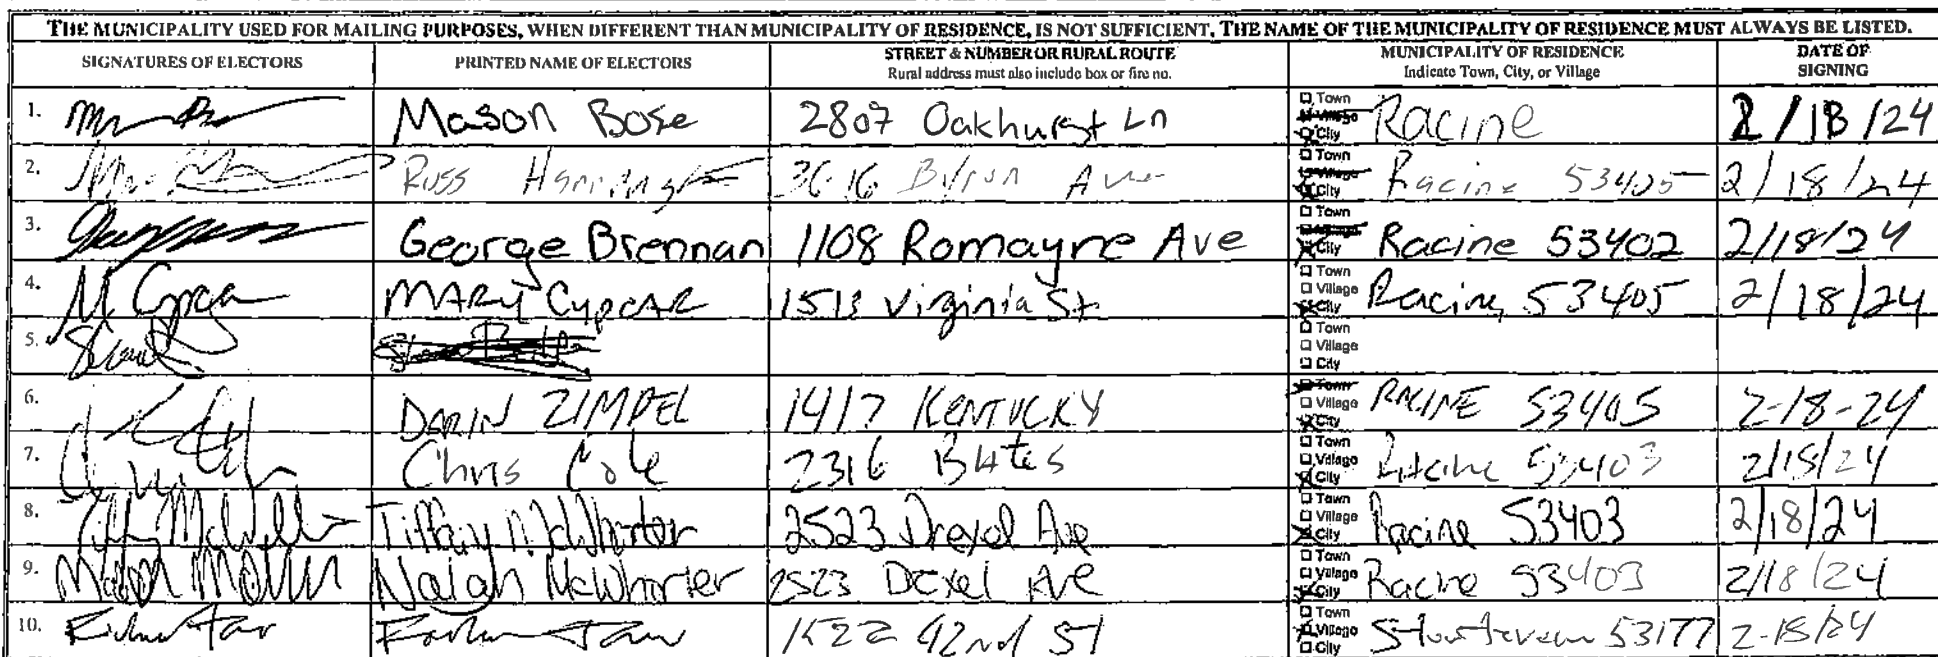 THE MUNICIPALITY USED FOR MAILING PURPOSES, WHEN DIFFERENT THAN MUNICIPALITY OF RESIDENCE, IS NOT SUFFICIENT. THE NAME OF THE MUNICIPALITY OF RESIDENCE MUST ALWAYS BE LISTED.
SIGNATURES OF ELECTORS PRINTED NAME OF ELECTORS STREET & NUMBER OR RURAL ROUTE Rural address must also include box or fire no. MUNICIPALITY OF RESIDENCE Indicate Town, City, or Village DATE OF SIGNING
1. Mason Bose 2807 Oakhurst Ln Town Village City Racine 2/18/24
2. Russ 3616 Byron Ave Town Village City Racine 53405 2/18/24
3. George Brennan 1108 Romayne Ave Town Village City Racine 53402 2/18/24
4. M Cypcar MARY CYPCAR 1513 Virginia St. Town Village City Racine, 53405 2/18/24
5. Town Village City
6. DARIN ZIMPEL 1417 KENTUCKY Town Village City RACINE 53405 2-18-24
7. Chris Cole 2316 BAtes Town Village City Racine 53403 2/18/24
8. Tiffany McWhorter 2523 Drexel Ave Town Village City Racine 53403 2/18/24
9. McWhorter 2523 Dexel Ave Town Village City Racine 53403 2/18/24
10. 1522 92nd St Town Village City 53177 2-18/24